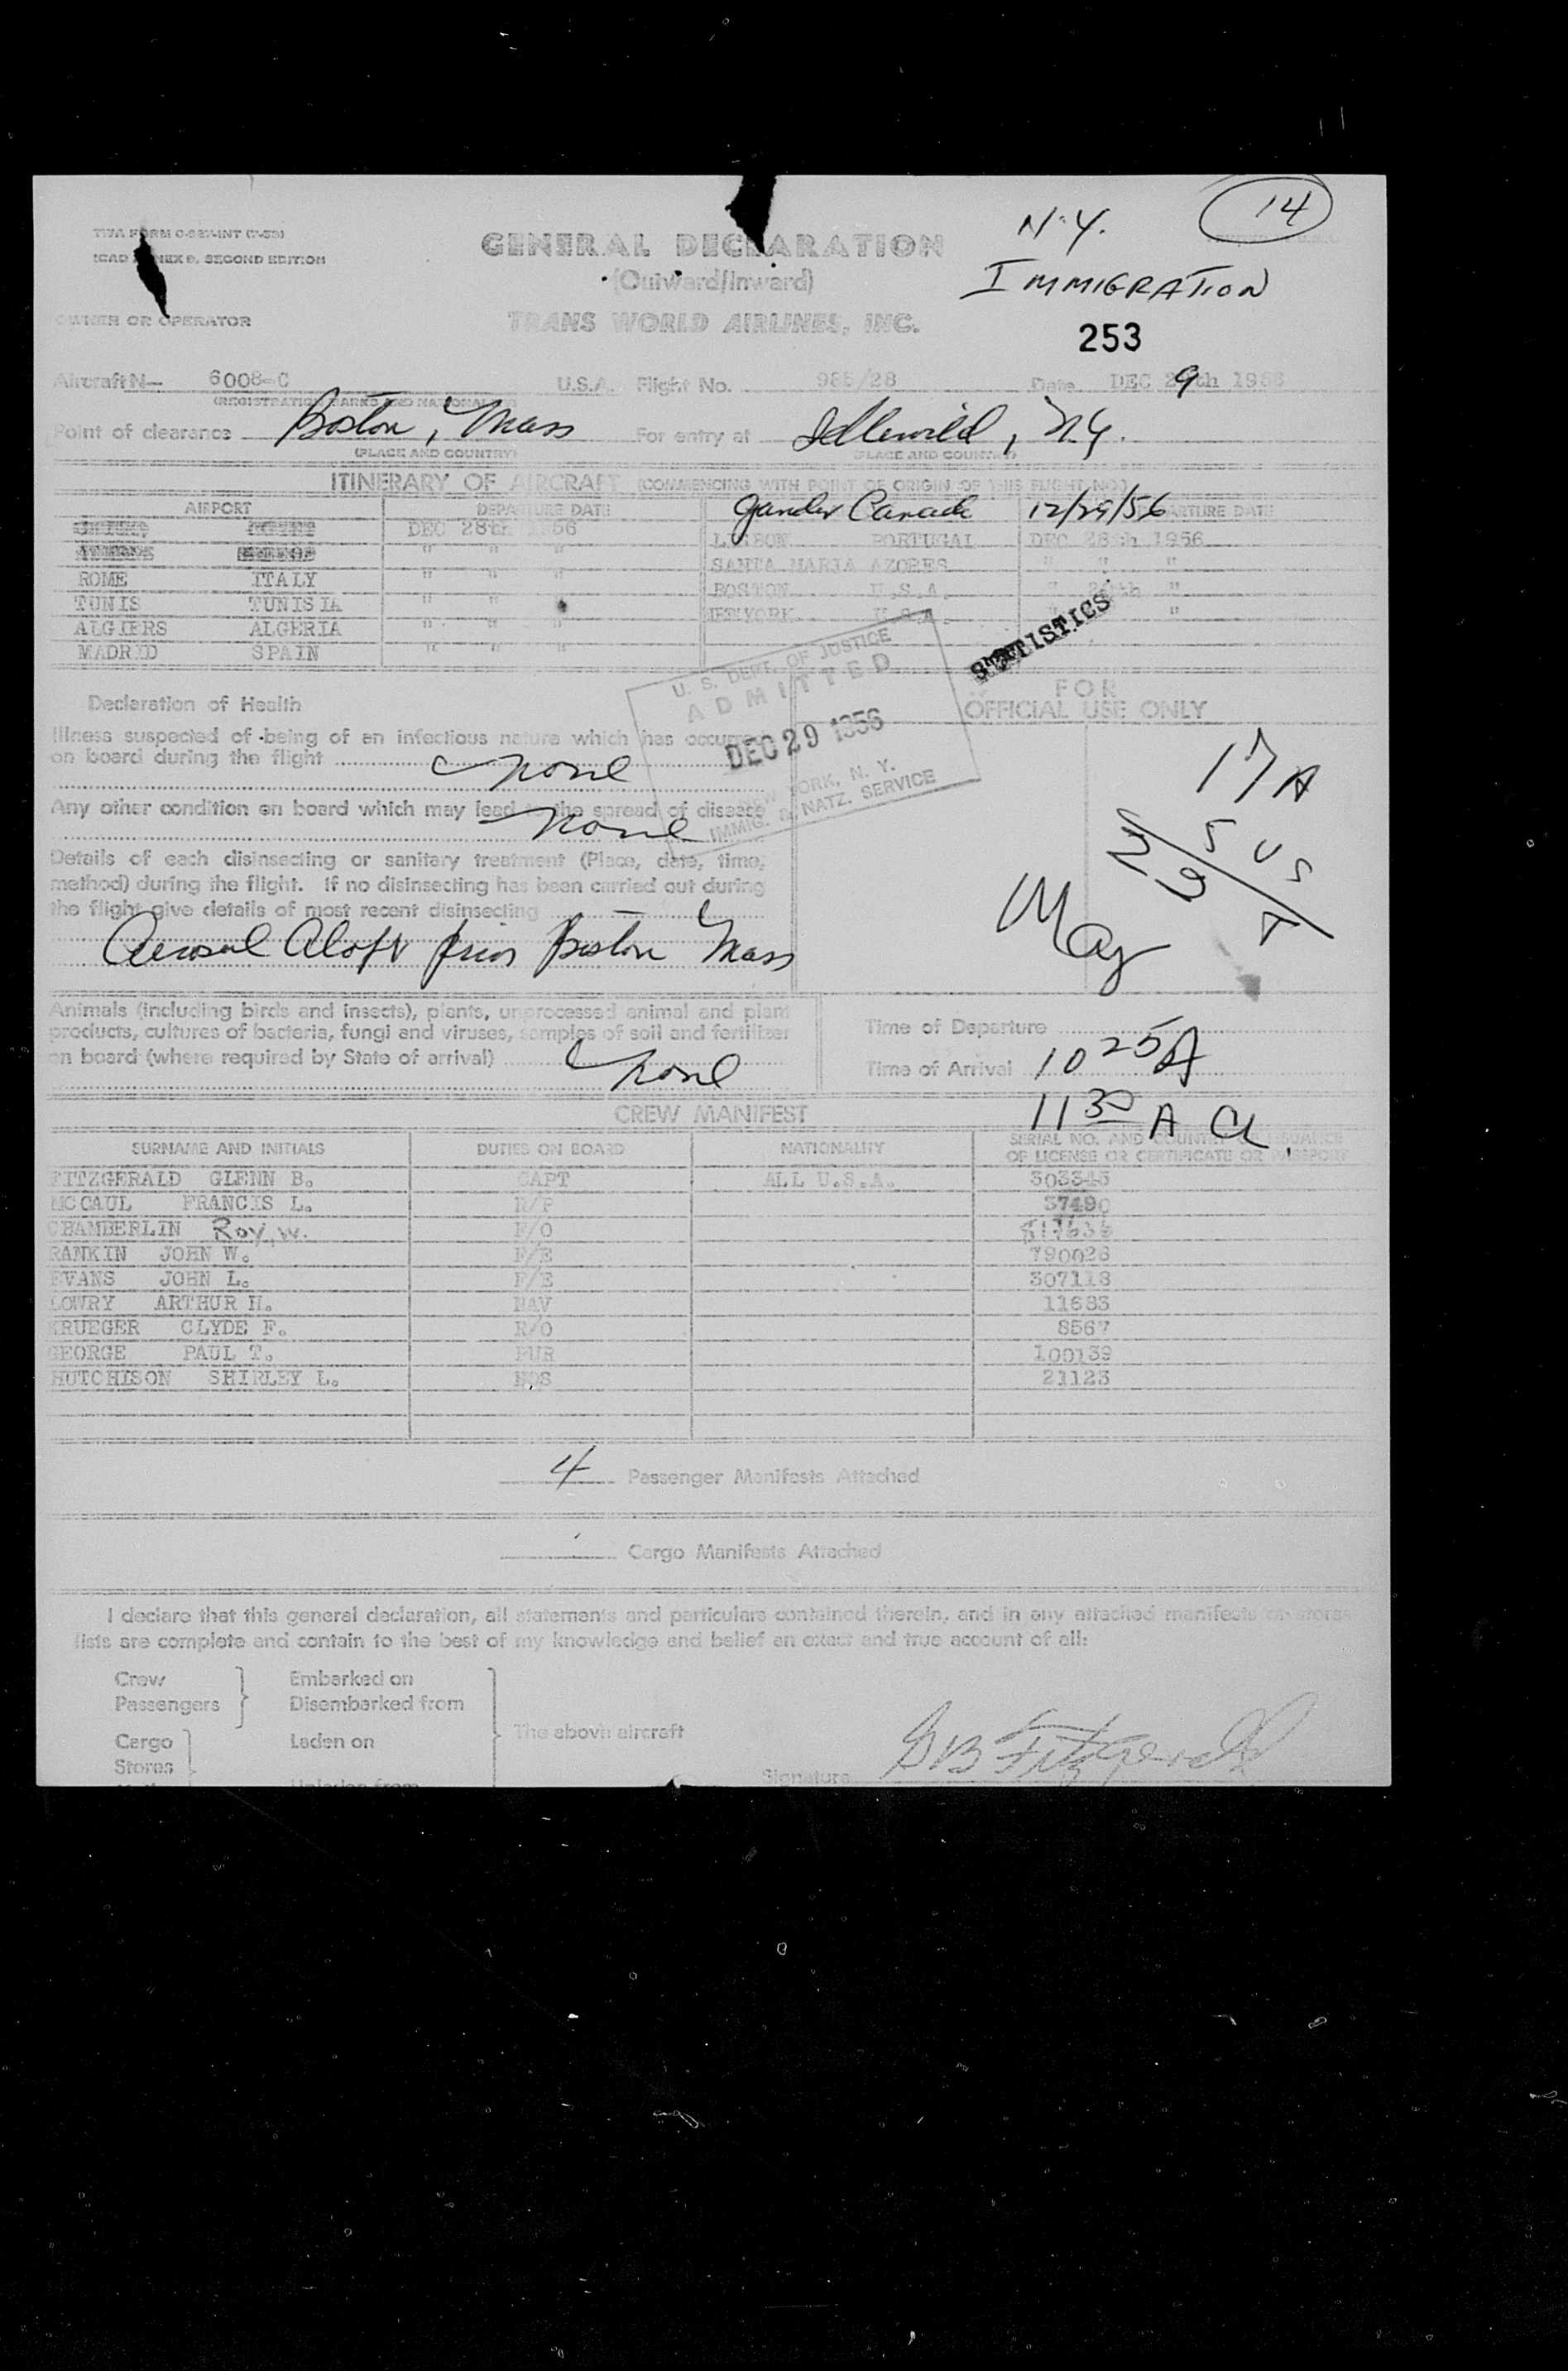 N.Y. 14
IMMIGRATION
253
TWA FORM
SECOND EDITION
GENERAL DECLARATION
(Outward/Inward)
OWNER OR OPERATOR
TRANS WORLD AIRLINES, INC.
Aircraft N— 6008-C U.S.A. Flight No. Date DEC 29th 1956
(REGISTRATION MARKS AND NATIONALITY)
Point of clearance Boston, Mass For entry at Idlewild, N.Y.
(PLACE AND COUNTRY) (PLACE AND COUNTRY)
ITINERARY OF AIRCRAFT (COMMENCING WITH POINT OF ORIGIN OF THIS FLIGHT NO.)
AIRPORT DEPARTURE DATE Gander Canada 12/29/56 DEPARTURE DATE
DEC 28th 1956
" " " LISBON PORTUGAL DEC 28th 1956
ROME ITALY " " " SANTA MARIA AZORES " " "
TUNIS TUNISIA " " " BOSTON U.S.A. " 29th "
ALGIERS ALGERIA " " " NEWYORK U.S.A. " "
MADRID SPAIN " " "
STATISTICS
U. S. DEPT. OF JUSTICE
ADMITTED
DEC 29 1956
NEW YORK, N. Y.
IMMIG. & NATZ. SERVICE
FOR
OFFICIAL USE ONLY
Declaration of Health
Illness suspected of being of an infectious nature which has occurred
on board during the flight none
Any other condition on board which may lead to the spread of disease
none
Details of each disinsecting or sanitary treatment (Place, date, time,
method) during the flight. If no disinsecting has been carried out during
the flight give details of most recent disinsecting
Aerosol Aloft prior Boston Mass
17 A
5 US
Animals (including birds and insects), plants, unprocessed animal and plant
products, cultures of bacteria, fungi and viruses, samples of soil and fertilizer
on board (where required by State of arrival) none
Time of Departure
Time of Arrival 10 25 A
11 30 A
CREW MANIFEST
SURNAME AND INITIALS DUTIES ON BOARD NATIONALITY SERIAL NO. AND COUNTRY OF ISSUANCE
OF LICENSE OR CERTIFICATE OR PASSPORT
FITZGERALD GLENN B. CAPT ALL U.S.A. 303343
MCCAUL FRANCIS L. 37490
CHAMBERLIN Roy W. F/O
RANKIN JOHN W. F/E 790026
EVANS JOHN L. F/E 307118
LOWRY ARTHUR H. NAV 11683
KRUEGER CLYDE F. R/O 8567
GEORGE PAUL T. PUR 100139
HUTCHISON SHIRLEY L. HOS 21123
4 Passenger Manifests Attached
Cargo Manifests Attached
I declare that this general declaration, all statements and particulars contained therein, and in any attached manifests or stores
lists are complete and contain to the best of my knowledge and belief an exact and true account of all:
Crew Embarked on
Passengers Disembarked from
The above aircraft
Cargo Laden on
Stores
Signature GB Fitzgerald